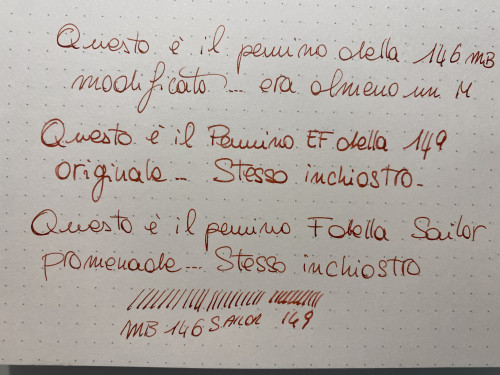 Questo è il pennino della 146 MB
modificato... era almeno un M
Questo è il Pennino EF della 149
originale... Stesso inchiostro.
Questo è il pennino F della Sailor
promenade... Stesso inchiostro
MB 146 SAILOR 149